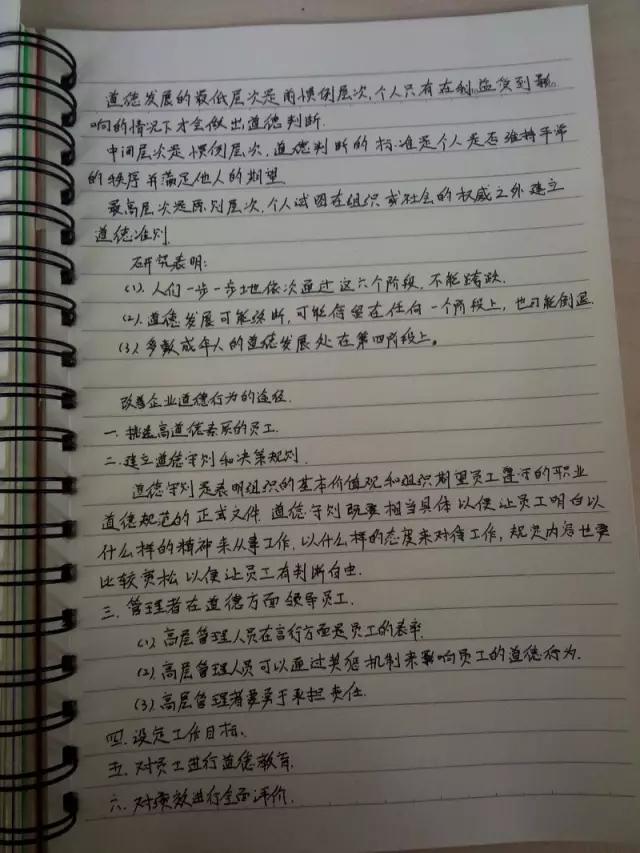 道德发展的最低层次是前惯例层次,个人只有在利益受到影
响的情况下才会做出道德判断.
中间层次是惯例层次,道德判断的标准是个人是否维持平常
的秩序并满足他人的期望
最高层次是原则层次,个人试图在组织或社会的权威之外建立
道德准则.
研究表明:
(1).人们一步一步地依次通过这六个阶段,不能跨跃.
(2).道德发展可能终断,可能停留在任何一个阶段上,也可能倒退.
(3).多数成年人的道德发展处在第四阶段上。
改善企业道德行为的途径.
一.挑选高道德素质的员工.
二.建立道德守则和决策规则.
道德守则是表明组织的基本价值观和组织期望员工遵守的职业
道德规范的正式文件.道德守则既要相当具体以便让员工明白以
什么样的精神来从事工作,以什么样的态度来对待工作,规定内容也要
比较宽松以便让员工有判断自由.
三.管理者在道德方面领导员工.
(1).高层管理人员在言行方面是员工的表率.
(2).高层管理人员可以通过奖惩机制来影响员工的道德行为.
(3).高层管理者要勇于承担责任.
四.设定工作目标.
五.对员工进行道德教育.
六.对绩效进行全面评价.